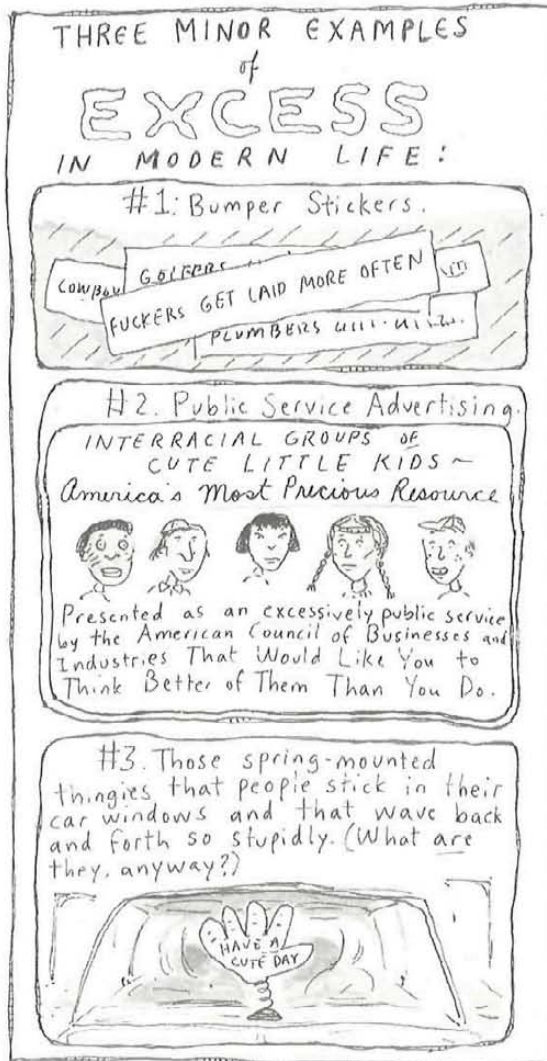 THREE MINOR EXAMPLES
of
EXCESS
IN MODERN LIFE:
#1: Bumper Stickers.
GOLFERS
COWBOY
FUCKERS GET LAID MORE OFTEN
PLUMBERS
#2. Public Service Advertising.
INTERRACIAL GROUPS OF
CUTE LITTLE KIDS ~
America's Most Precious Resource
Presented as an excessively public service
by the American Council of Businesses and
Industries That Would Like You to
Think Better of Them Than You Do.
#3. Those spring-mounted
thingies that people stick in their
car windows and that wave back
and forth so stupidly. (What are
they, anyway?)
HAVE A
CUTE DAY